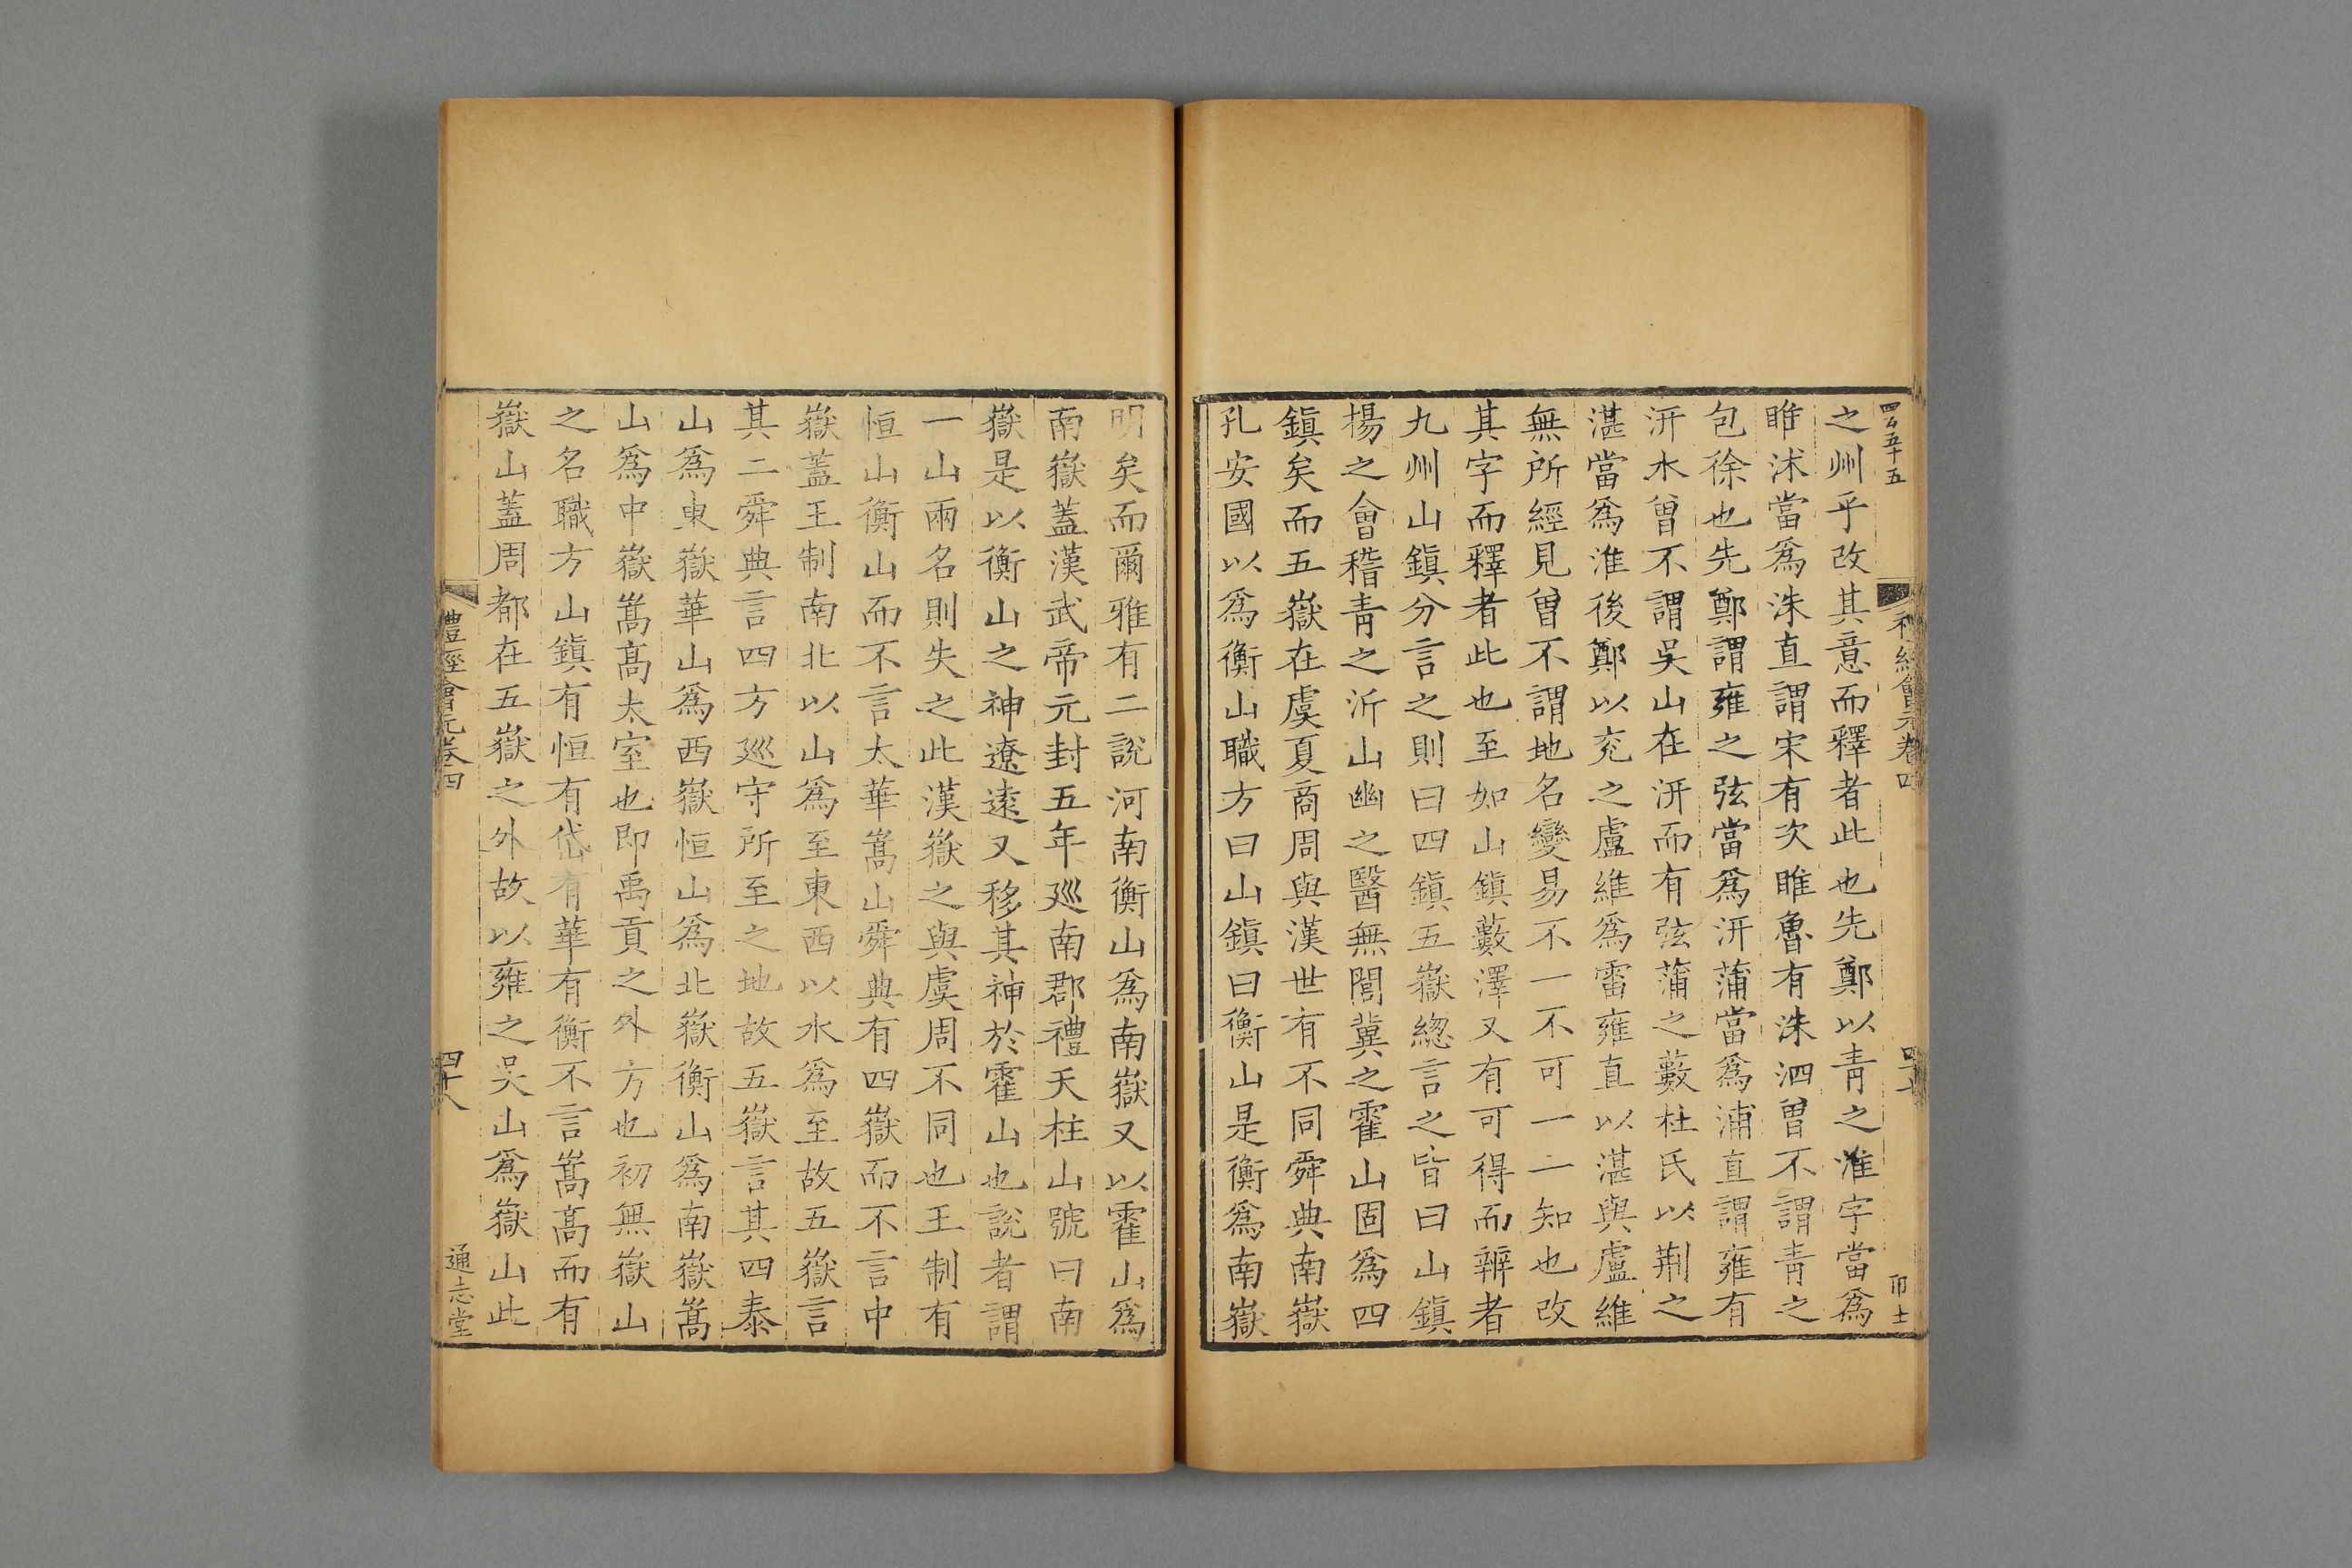 四百五十五
之州乎改其意而釋者此也先鄭以青之淮字當為
睢沭當為洙直謂宋有次睢魯有洙泗曾不謂青之
包徐也先鄭謂雍之弦當為汧蒲當為浦直謂雍有
汧水曾不謂吳山在汧而有弦蒲之藪杜氏以荆之
湛當為淮後鄭以兖之盧維為雷雍直以湛與盧維
無所經見曾不謂地名變易不一不可一一知也改
其字而釋者此也至如山鎮藪澤又有可得而辨者
九州山鎮分言之則曰四鎮五嶽緫言之皆曰山鎮
揚之會稽青之沂山幽之醫無閭冀之霍山固為四
鎮矣而五嶽在虞夏商周與漢世有不同舜典南嶽
孔安國以為衡山職方曰山鎮曰衡山是衡為南嶽
明矣而爾雅有二說河南衡山為南嶽又以霍山為
南嶽蓋漢武帝元封五年廵南郡禮天柱山號曰南
嶽是以衡山之神遼遠又移其神於霍山也說者謂
一山兩名則失之此漢嶽之與虞周不同也王制有
恒山衡山而不言太華嵩山舜典有四嶽而不言中
嶽蓋王制南北以山為至東西以水為至故五嶽言
其二舜典言四方廵守所至之地故五嶽言其四泰
山為東嶽華山為西嶽恒山為北嶽衡山為南嶽嵩
山為中嶽嵩高太室也即禹貢之外方也初無嶽山
之名職方山鎮有恒有岱有華有衡不言嵩高而有
嶽山蓋周都在五嶽之外故以雍之吳山為嶽山此
禮經會元卷四
四十八
通志堂